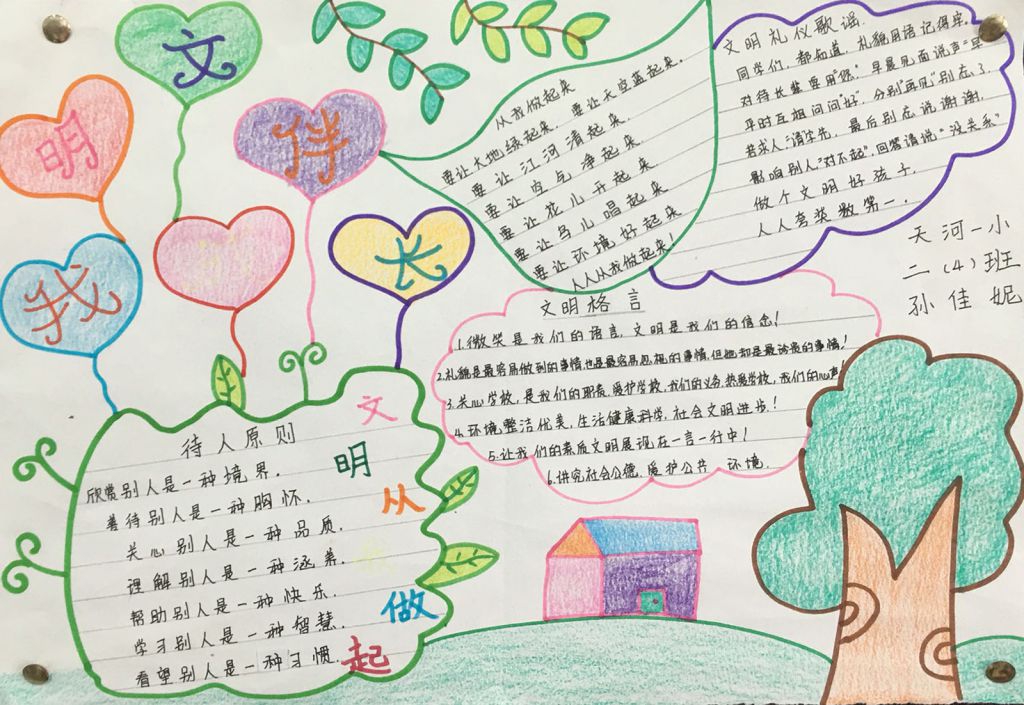 文
明
伴
我
长
从我做起来
要让大地绿起来，要让天空蓝起来，
要让江河清起来，
要让空气净起来，
要让花儿开起来
要让鸟儿唱起来
要让环境好起来
人人从我做起来！
文明礼仪歌谣
同学们，都知道，礼貌用语记得牢，
对待长辈要用"您"，早晨见面说声"早"
平时互相问问"好"，分别"再见"别忘了，
若求人"请"字先，最后别忘说谢谢，
影响别人"对不起"，回答请说"没关系"
做个文明好孩子，
人人夸类数第一，
天河一小
二（4）班
孙佳妮
文明格言
1.微笑是我们的语言，文明是我们的信念！
2.礼貌是最容易做到的事情，也是最容易忽视的事情，但她却是最珍贵的事情！
3.关心学校，是我们的职责，爱护学校，我们的义务，热爱学校，我们的心声！
4.环境整洁优美，生活健康科学，社会文明进步！
5.让我们的素质文明展现在一言一行中！
6.讲究社会公德，爱护公共 环境，
待人原则
欣赏别人是一种境界，
善待别人是一种胸怀，
关心别人是一种品质，
理解别人是一种涵养，
帮助别人是一种快乐，
学习别人是一种智慧，
看望别人是一种习惯，
文
明
从
做
起